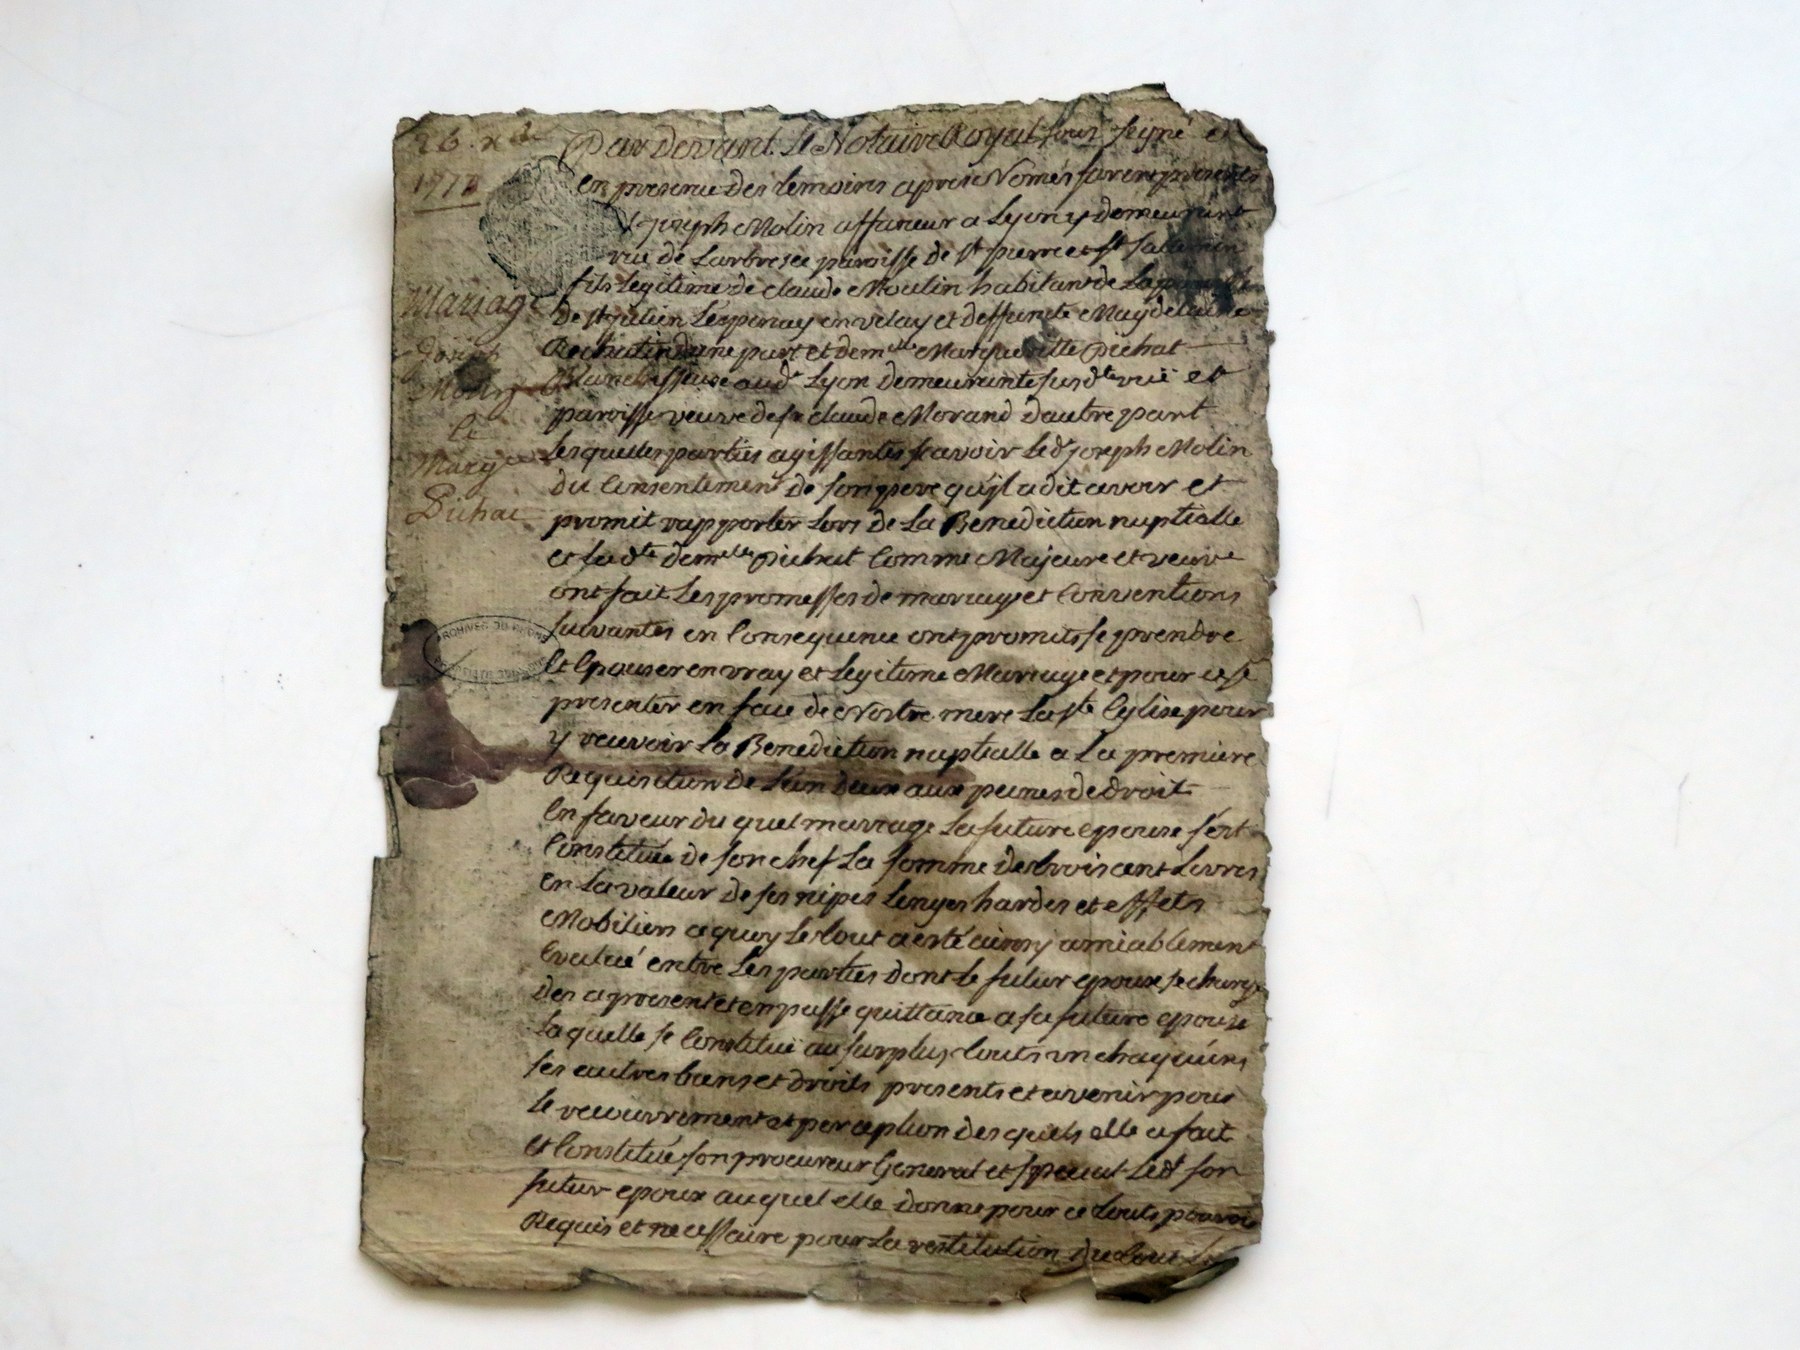 26. xbre
Par devant Le Notaire Royal sous signé et
en presence des temoins apres Només furent presents
Sr joseph Molin affaneur a Lyon y demeurant
rue de Larbresec paroisse de St pierre et St saturnin
fils Legitime de claude Moulin habitant de La paroisse
de St julien Lespinay en velay et deffunte Magdelaine
d'une part et demlle Margueritte pichat
Blanchisseuse aud. Lyon demeurante susdte ruë et
paroisse veuve de sr claude Morand d'autre part
Lesquelles parties agissantes scavoir Led joseph Molin
du Consentement de son pere qu'jl a dit avoir et
promit rapporter Lors de La Benediction nuptialle
et ladte demlle pichat Comme Majeure et veuve
ont fait Les promesses de mariage et Conventions
suivantes en Consequence ont promits se prendre
et Epouser en vray et Legitime Mariage et pour ce se
presenter en face de Nostre mere La Ste Eglise pour
y recevoir La Benediction nuptialle a La premiere
Requisition de L'un deux aux peines de droit
En faveur du quel mariage La future epouse s'est
Constituée de son chef La somme de trois cent Livres
en La valeur de ses nipes Linges hardes et effets
Mobiliers a quoy Le tout a esté ainsy amiablement
Evalué entre Les parties dont le futur epoux se charge
des a present et en passe quittance a sa future epouse
La quelle se Constituë au surplus touts un chaquuns
ses autres biens et droits presents et avenir pour
le recouvrement et perception des quels elle a fait
et Constitué son procureur General et special Led son
futur epoux auquel elle donne pour ce touts pouvoir
Requis et necessaire pour La restitution du tout
Mariage
Joseph
Molin
et
Margte
Pichat
ARCHIVES DU RHONE